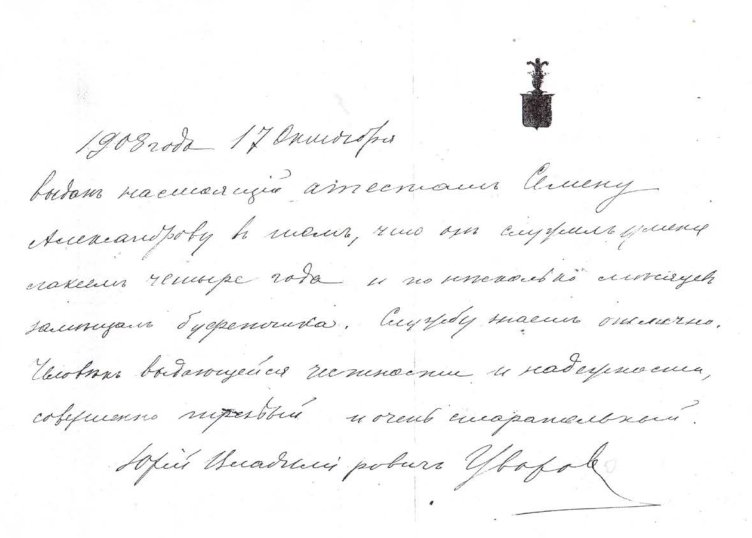 1908 года 17 Октября
выданъ настоящій атестатъ Семену
Александрову в томъ, что онъ служилъ у меня
лакеемъ четыре года и по нѣсколько мѣсяцев
замѣщалъ буфетчика. Службу знаетъ отлично.
Человѣкъ выдающейся честности и надежности,
совершенно трезвый и очень старательный.
Юрій Владимировичъ Уваровъ